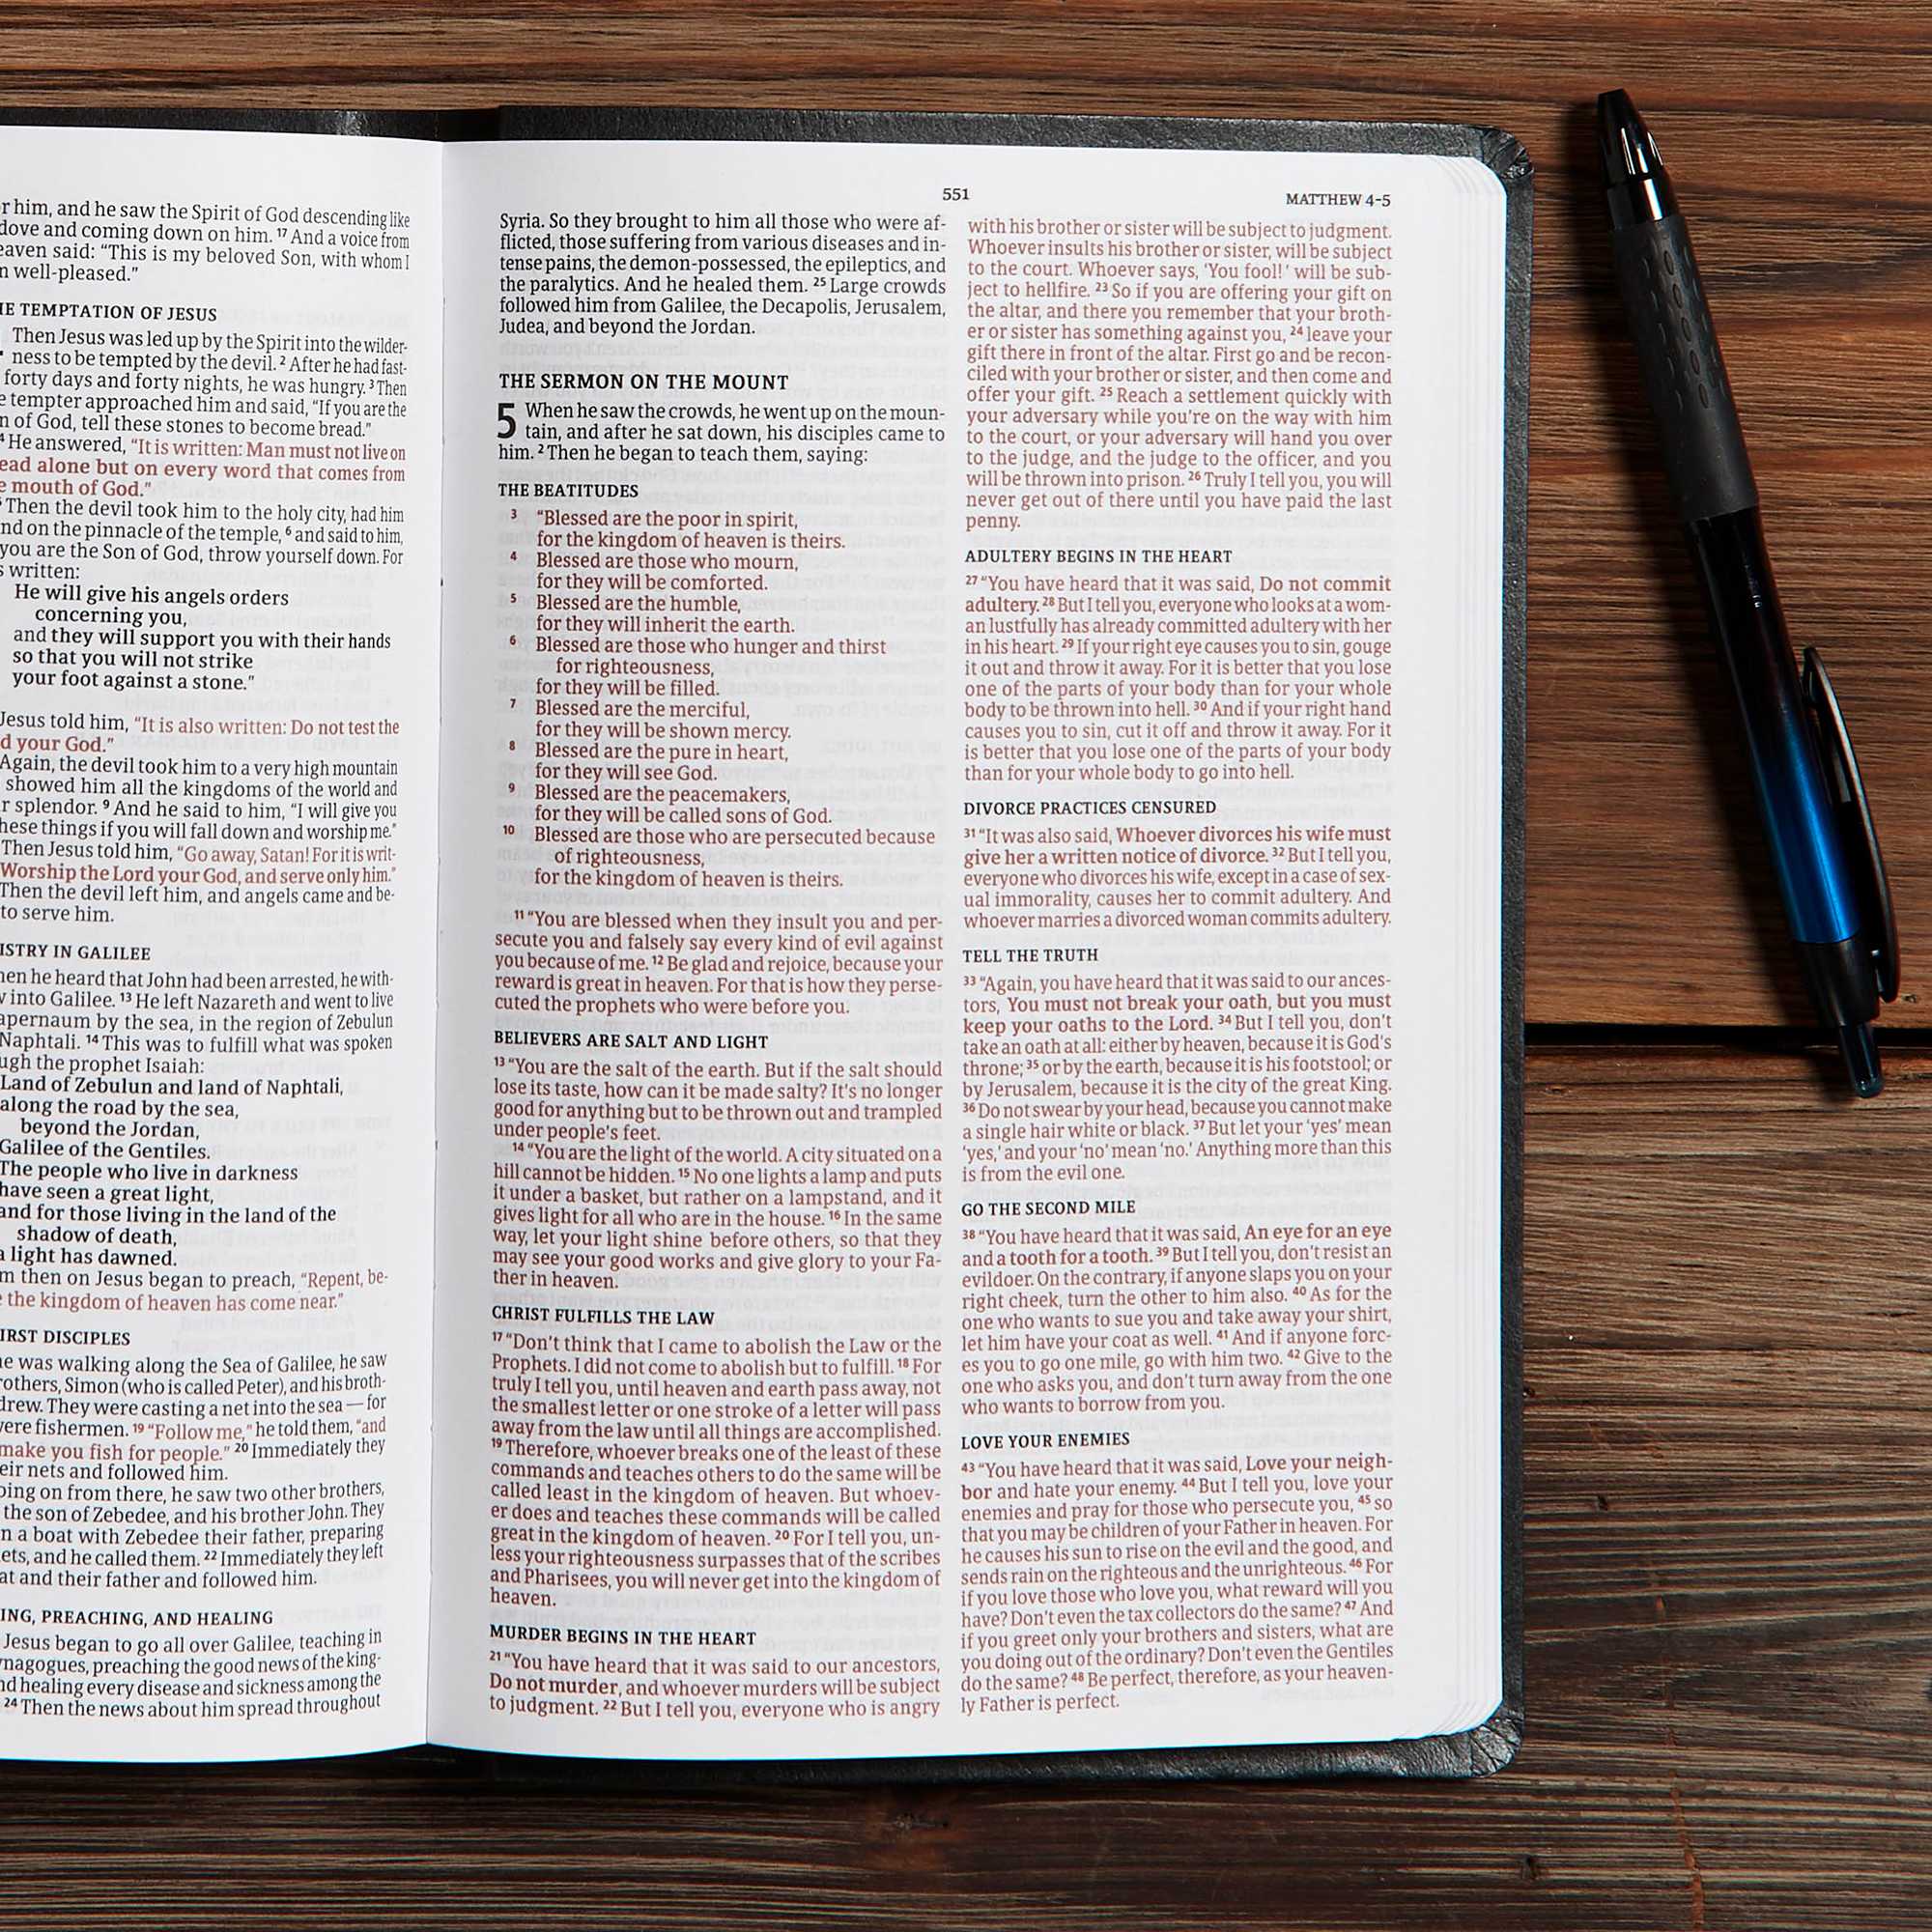 r him, and he saw the Spirit of God descending like
dove and coming down on him. 17 And a voice from
eaven said: “This is my beloved Son, with whom I
well-pleased.”
TEMPTATION OF JESUS
Then Jesus was led up by the Spirit into the wilder-
ness to be tempted by the devil. 2 After he had fast-
forty days and forty nights, he was hungry. 3 Then
e tempter approached him and said, “If you are the
n of God, tell these stones to become bread.”
4 He answered, “It is written: Man must not live on
ead alone but on every word that comes from
e mouth of God.”
Then the devil took him to the holy city, had him
nd on the pinnacle of the temple, 6 and said to him,
you are the Son of God, throw yourself down. For
s written:
He will give his angels orders
concerning you,
and they will support you with their hands
so that you will not strike
your foot against a stone.”
Jesus told him, “It is also written: Do not test the
d your God.”
Again, the devil took him to a very high mountain
showed him all the kingdoms of the world and
r splendor. 9 And he said to him, “I will give you
hese things if you will fall down and worship me.”
Then Jesus told him, “Go away, Satan! For it is writ-
Worship the Lord your God, and serve only him.”
Then the devil left him, and angels came and be-
to serve him.
ISTRY IN GALILEE
hen he heard that John had been arrested, he with-
into Galilee. 13 He left Nazareth and went to live
apernaum by the sea, in the region of Zebulun
Naphtali. 14 This was to fulfill what was spoken
ugh the prophet Isaiah:
Land of Zebulun and land of Naphtali,
along the road by the sea,
beyond the Jordan,
Galilee of the Gentiles.
The people who live in darkness
have seen a great light,
and for those living in the land of the
shadow of death,
a light has dawned.
m then on Jesus began to preach, “Repent, be-
the kingdom of heaven has come near.”
IRST DISCIPLES
he was walking along the Sea of Galilee, he saw
rothers, Simon (who is called Peter), and his broth-
drew. They were casting a net into the sea — for
were fishermen. 19 “Follow me,” he told them, “and
make you fish for people.” 20 Immediately they
eir nets and followed him.
oing on from there, he saw two other brothers,
the son of Zebedee, and his brother John. They
n a boat with Zebedee their father, preparing
ets, and he called them. 22 Immediately they left
at and their father and followed him.
ING, PREACHING, AND HEALING
Jesus began to go all over Galilee, teaching in
nagogues, preaching the good news of the king-
nd healing every disease and sickness among the
24 Then the news about him spread throughout
551
MATTHEW 4-5
Syria. So they brought to him all those who were af-
flicted, those suffering from various diseases and in-
tense pains, the demon-possessed, the epileptics, and
the paralytics. And he healed them. 25 Large crowds
followed him from Galilee, the Decapolis, Jerusalem,
Judea, and beyond the Jordan.
THE SERMON ON THE MOUNT
5 When he saw the crowds, he went up on the moun-
tain, and after he sat down, his disciples came to
him. 2 Then he began to teach them, saying:
THE BEATITUDES
3 “Blessed are the poor in spirit,
for the kingdom of heaven is theirs.
4 Blessed are those who mourn,
for they will be comforted.
5 Blessed are the humble,
for they will inherit the earth.
6 Blessed are those who hunger and thirst
for righteousness,
for they will be filled.
7 Blessed are the merciful,
for they will be shown mercy.
8 Blessed are the pure in heart,
for they will see God.
9 Blessed are the peacemakers,
for they will be called sons of God.
10 Blessed are those who are persecuted because
of righteousness,
for the kingdom of heaven is theirs.
11 “You are blessed when they insult you and per-
secute you and falsely say every kind of evil against
you because of me. 12 Be glad and rejoice, because your
reward is great in heaven. For that is how they perse-
cuted the prophets who were before you.
BELIEVERS ARE SALT AND LIGHT
13 “You are the salt of the earth. But if the salt should
lose its taste, how can it be made salty? It's no longer
good for anything but to be thrown out and trampled
under people's feet.
14 “You are the light of the world. A city situated on a
hill cannot be hidden. 15 No one lights a lamp and puts
it under a basket, but rather on a lampstand, and it
gives light for all who are in the house. 16 In the same
way, let your light shine before others, so that they
may see your good works and give glory to your Fa-
ther in heaven.
CHRIST FULFILLS THE LAW
17 “Don't think that I came to abolish the Law or the
Prophets. I did not come to abolish but to fulfill. 18 For
truly I tell you, until heaven and earth pass away, not
the smallest letter or one stroke of a letter will pass
away from the law until all things are accomplished.
19 Therefore, whoever breaks one of the least of these
commands and teaches others to do the same will be
called least in the kingdom of heaven. But whoev-
er does and teaches these commands will be called
great in the kingdom of heaven. 20 For I tell you, un-
less your righteousness surpasses that of the scribes
and Pharisees, you will never get into the kingdom of
heaven.
MURDER BEGINS IN THE HEART
21 “You have heard that it was said to our ancestors,
Do not murder, and whoever murders will be subject
to judgment. 22 But I tell you, everyone who is angry
with his brother or sister will be subject to judgment.
Whoever insults his brother or sister, will be subject
to the court. Whoever says, ‘You fool!’ will be sub-
ject to hellfire. 23 So if you are offering your gift on
the altar, and there you remember that your broth-
er or sister has something against you, 24 leave your
gift there in front of the altar. First go and be recon-
ciled with your brother or sister, and then come and
offer your gift. 25 Reach a settlement quickly with
your adversary while you're on the way with him
to the court, or your adversary will hand you over
to the judge, and the judge to the officer, and you
will be thrown into prison. 26 Truly I tell you, you will
never get out of there until you have paid the last
penny.
ADULTERY BEGINS IN THE HEART
27 “You have heard that it was said, Do not commit
adultery. 28 But I tell you, everyone who looks at a wom-
an lustfully has already committed adultery with her
in his heart. 29 If your right eye causes you to sin, gouge
it out and throw it away. For it is better that you lose
one of the parts of your body than for your whole
body to be thrown into hell. 30 And if your right hand
causes you to sin, cut it off and throw it away. For it
is better that you lose one of the parts of your body
than for your whole body to go into hell.
DIVORCE PRACTICES CENSURED
31 “It was also said, Whoever divorces his wife must
give her a written notice of divorce. 32 But I tell you,
everyone who divorces his wife, except in a case of sex-
ual immorality, causes her to commit adultery. And
whoever marries a divorced woman commits adultery.
TELL THE TRUTH
33 “Again, you have heard that it was said to our ances-
tors, You must not break your oath, but you must
keep your oaths to the Lord. 34 But I tell you, don't
take an oath at all: either by heaven, because it is God's
throne; 35 or by the earth, because it is his footstool; or
by Jerusalem, because it is the city of the great King.
36 Do not swear by your head, because you cannot make
a single hair white or black. 37 But let your ‘yes’ mean
‘yes,’ and your ‘no’ mean ‘no.’ Anything more than this
is from the evil one.
GO THE SECOND MILE
38 “You have heard that it was said, An eye for an eye
and a tooth for a tooth. 39 But I tell you, don't resist an
evildoer. On the contrary, if anyone slaps you on your
right cheek, turn the other to him also. 40 As for the
one who wants to sue you and take away your shirt,
let him have your coat as well. 41 And if anyone forc-
es you to go one mile, go with him two. 42 Give to the
one who asks you, and don't turn away from the one
who wants to borrow from you.
LOVE YOUR ENEMIES
43 “You have heard that it was said, Love your neigh-
bor and hate your enemy. 44 But I tell you, love your
enemies and pray for those who persecute you, 45 so
that you may be children of your Father in heaven. For
he causes his sun to rise on the evil and the good, and
sends rain on the righteous and the unrighteous. 46 For
if you love those who love you, what reward will you
have? Don't even the tax collectors do the same? 47 And
if you greet only your brothers and sisters, what are
you doing out of the ordinary? Don't even the Gentiles
do the same? 48 Be perfect, therefore, as your heaven-
ly Father is perfect.